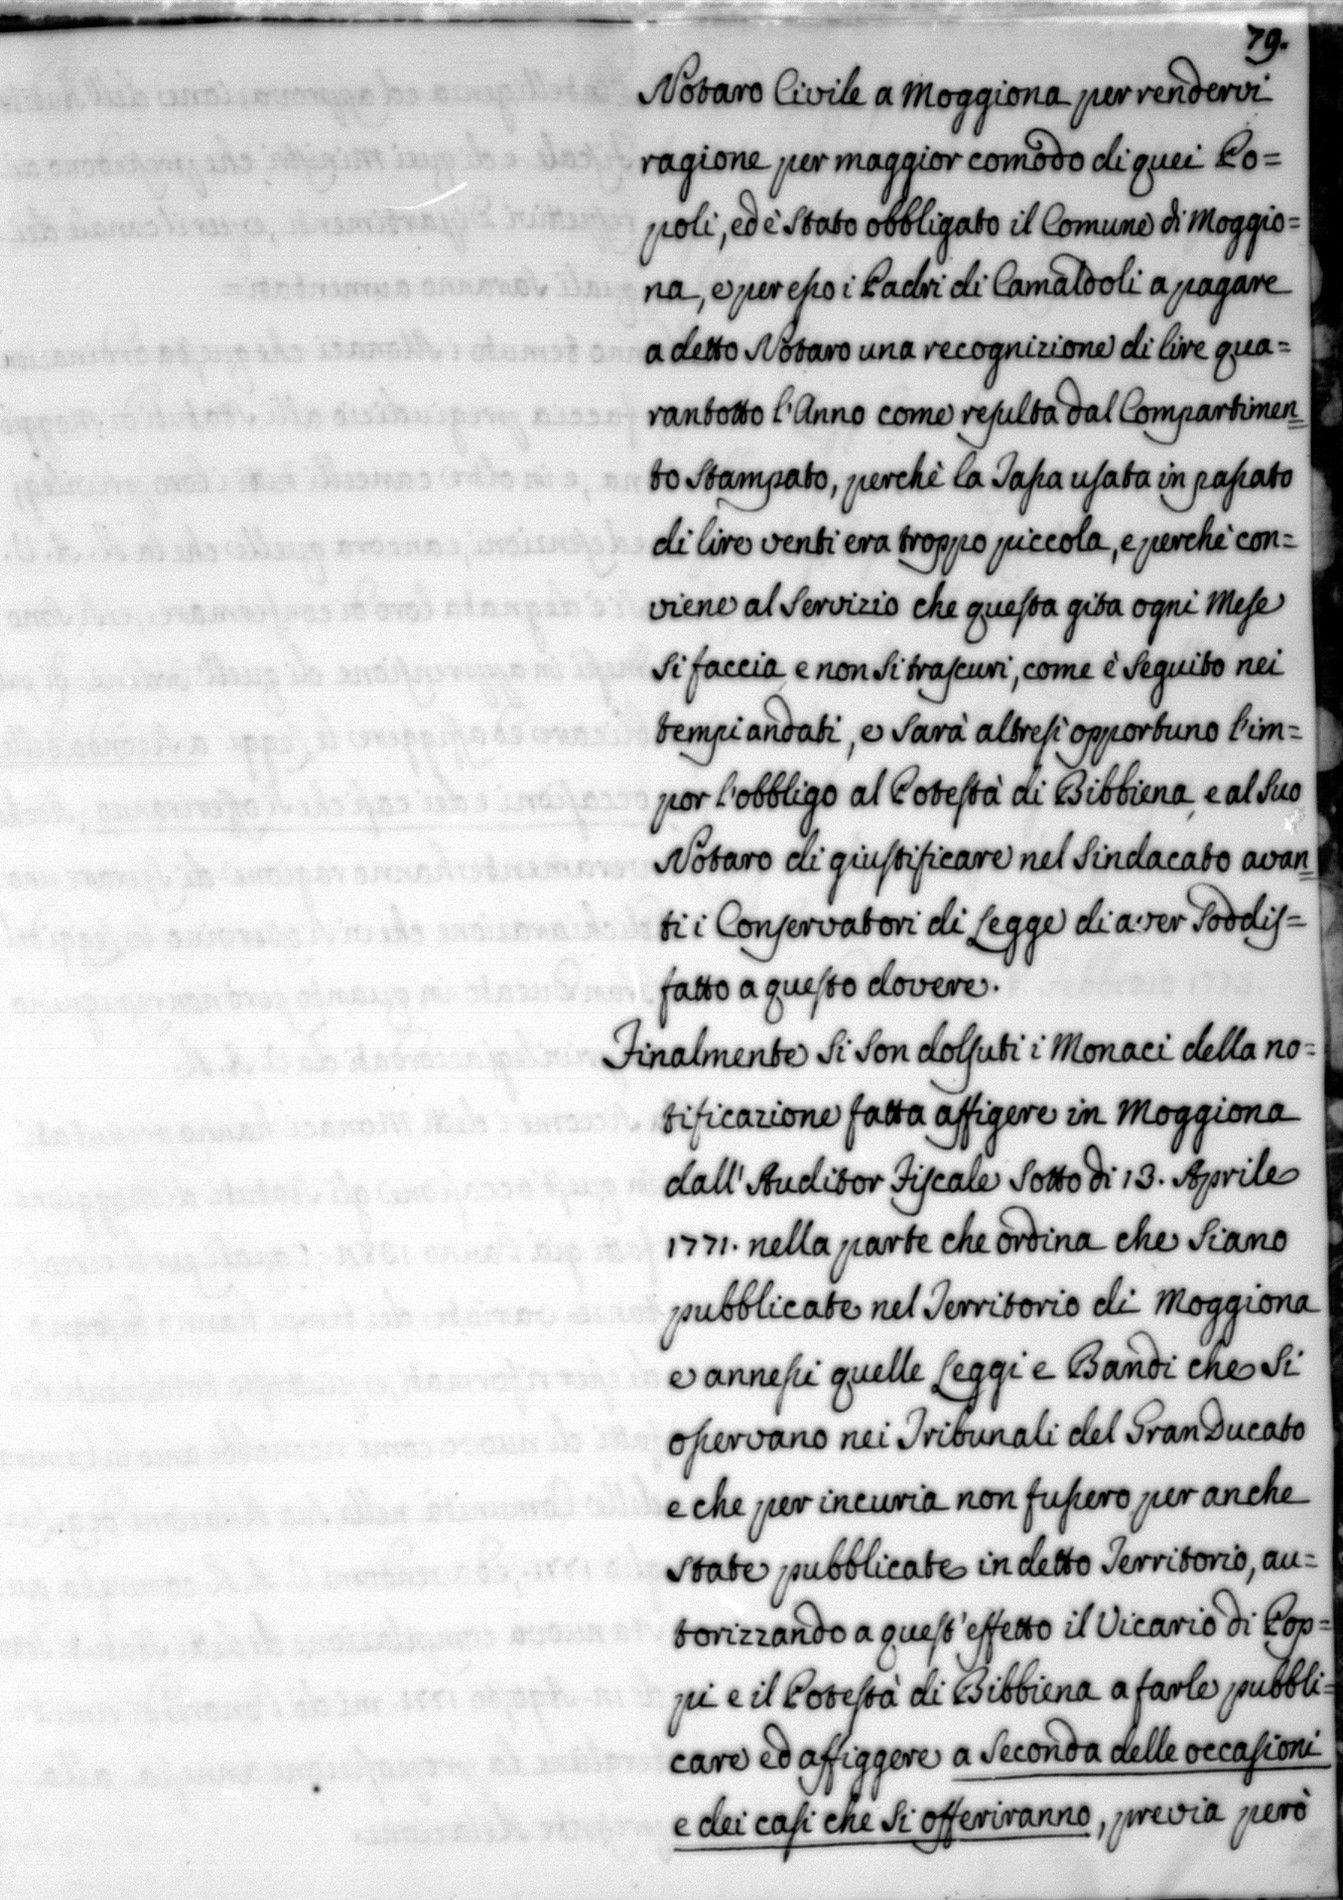 79.
Notaro Civile a Moggiona per rendervi
ragione per maggior comodo di quei Po=
poli, ed è stato obbligato il Comune di Moggio=
na, e per esso i Padri di Camaldoli a pagare
a detto Notaro una recognizione di lire qua=
rantotto l'Anno come resulta dal Compartimen=
to stampato, perchè la Tassa usata in passato
di lire venti era troppo piccola, e perchè con=
viene al servizio che questa gita ogni Mese
si faccia e non si trascuri, come è seguito nei
tempi andati, e sarà altresì opportuno l'im=
por l'obbligo al Potestà di Bibbiena e al suo
Notaro di giustificare nel Sindacato avan=
ti i Conservatori di Legge di aver soddis=
fatto a questo dovere.
Finalmente si son dolsuti i Monaci della no=
tificazione fatta affigere in Moggiona
dall'Auditor Fiscale sotto di 13. Aprile
1771. nella parte che ordina che siano
pubblicate nel Territorio di Moggiona
e annessi quelle Leggi e Bandi che si
osservano nei Tribunali del GranDucato
e che per incuria non fussero per anche
state pubblicate in detto Territorio, au=
torizzando a quest'effetto il Vicario di Pop=
pi e il Potestà di Bibbiena a farle pubbli=
care ed affiggere a seconda delle occasioni
e dei casi che si offeriranno, previa però